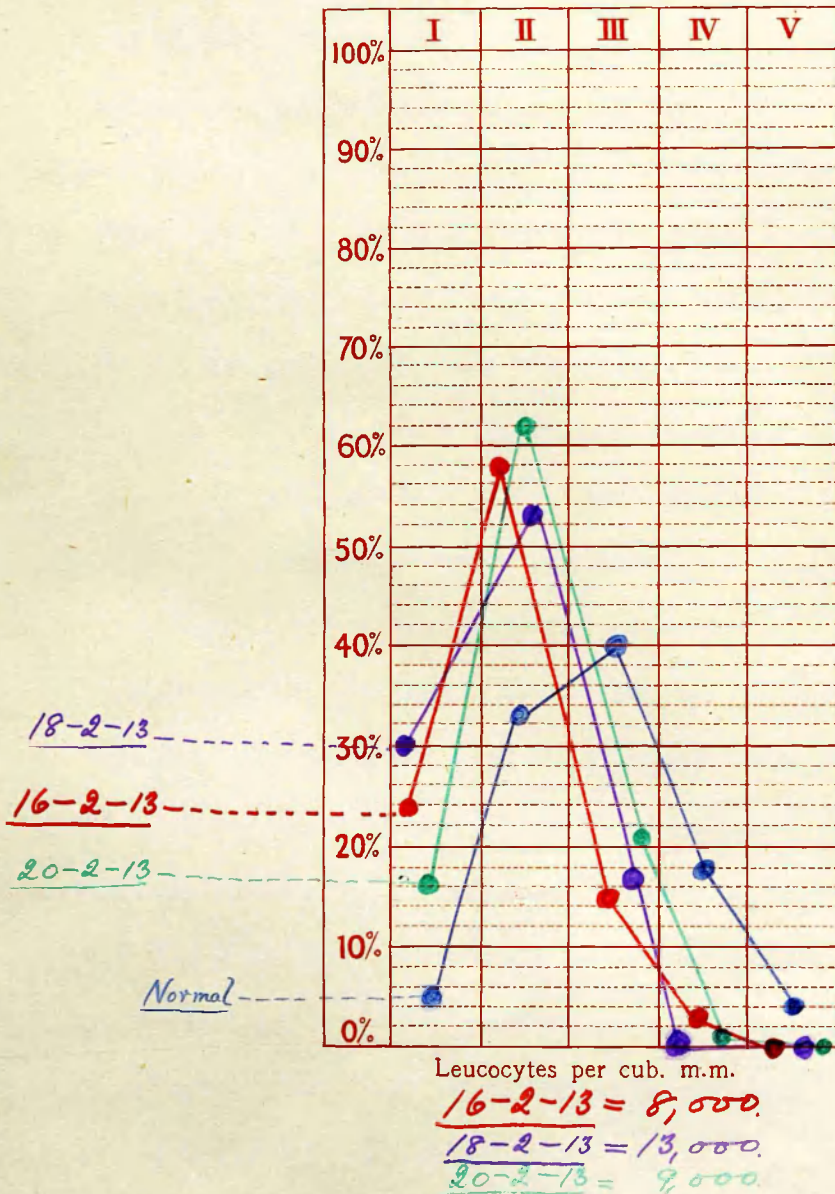 I II III IV V
100%
90%
80%
70%
60%
50%
40%
18-2-13
30%
16-2-13
20%
20-2-13
10%
Normal
0%
Leucocytes per cub. m.m.
16-2-13 = 8,000.
18-2-13 = 13,000.
20-2-13 = 9,000.